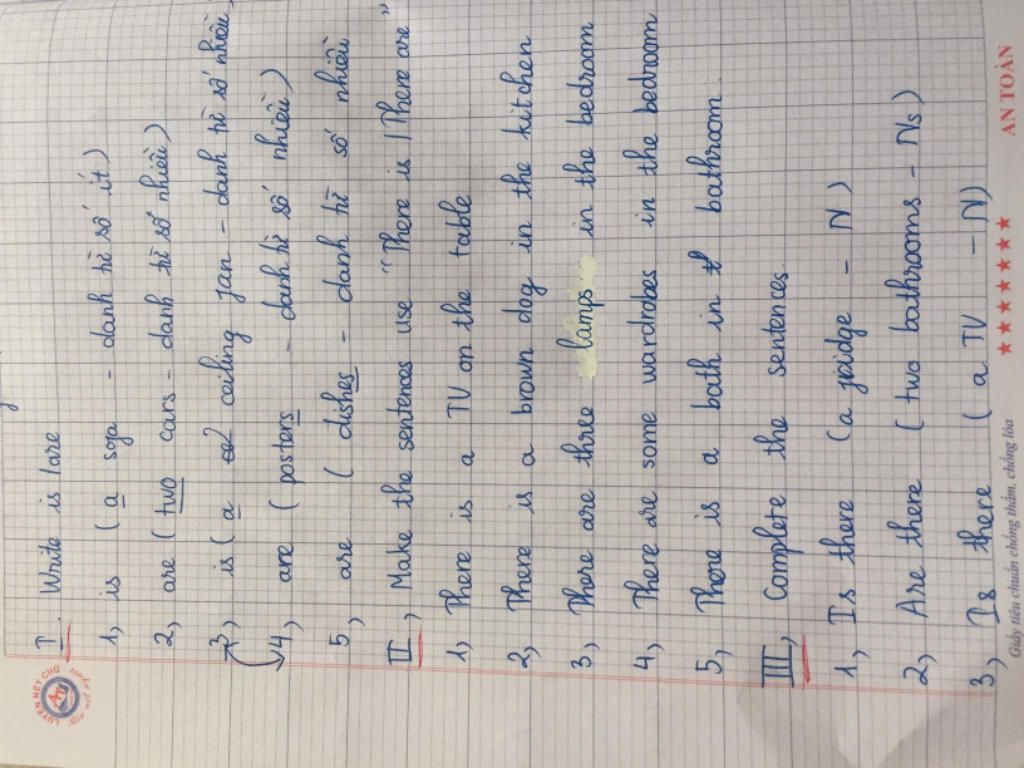 I. Write is / are
1, is ( a soga - danh từ số ít )
2, are ( two cars - danh từ số nhiều )
3, is ( a ceiling fan - danh từ số nhiều
4, are ( posters - danh từ số nhiều )
5, are ( dishes - danh từ số nhiều
II, Make the sentences use "There is / There are"
1, There is a TV on the table
2, There is a brown dog in the kitchen
3, There are three lamps in the bedroom
4, There are some wardrobes in the bedroom
5, There is a bath in bathroom
III, Complete the sentences.
1, Is there ( a fridge - N )
2, Are there ( two bathrooms - Ns )
3, Is there ( a TV - N )
LUYỆN NÉT CHỮ
Giấy tiêu chuẩn chống thấm, chống lóa ★★★★★★★ AN TOÀN